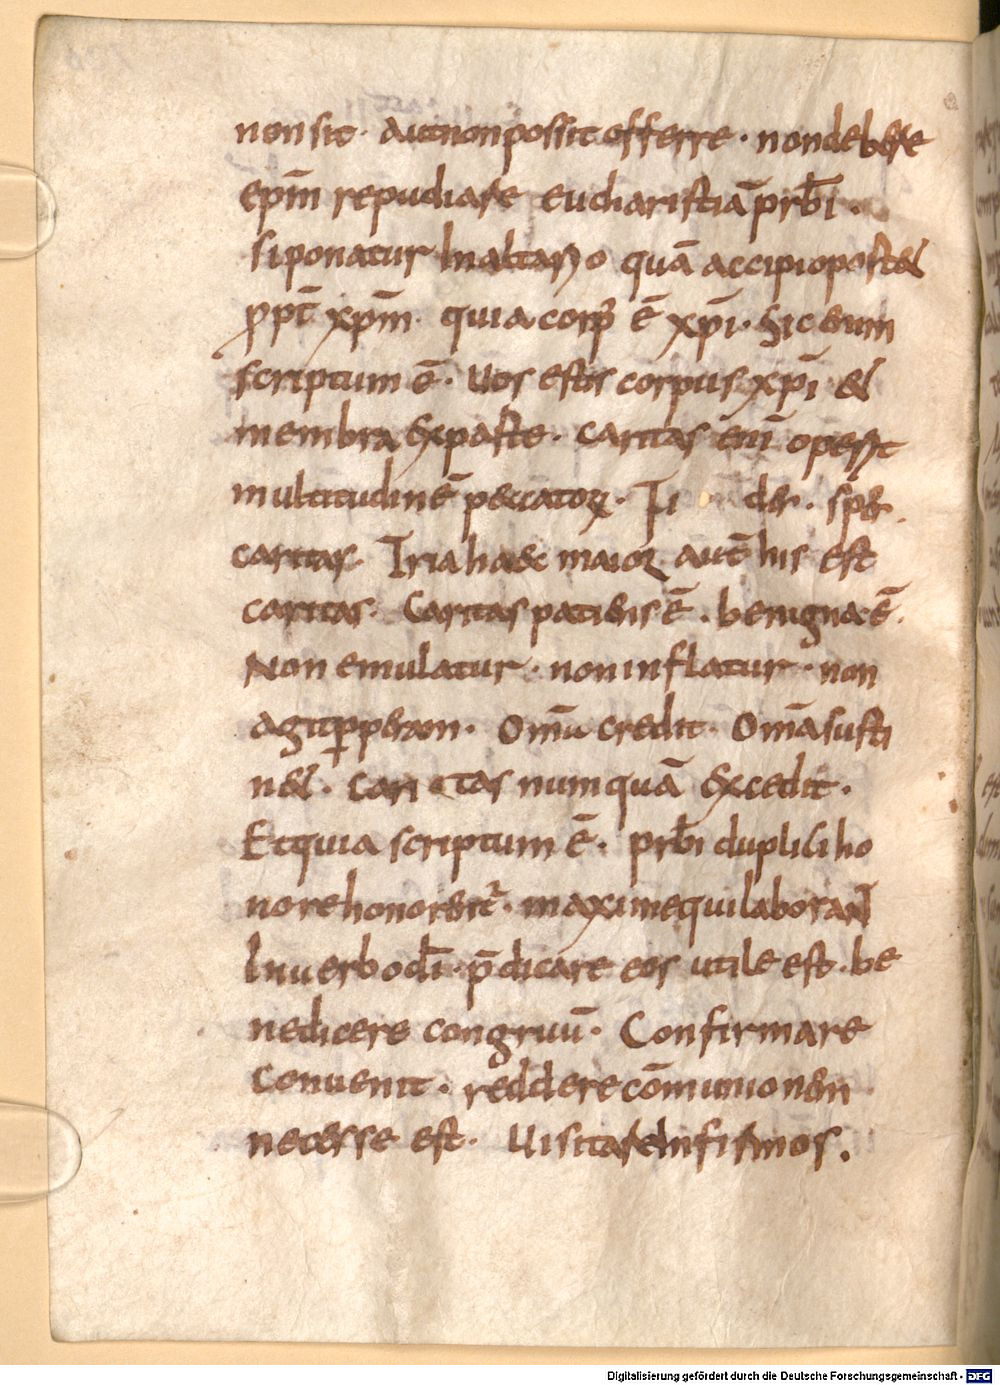 non sit· aut non possit offerre· non debere
epm̄ repudiare eucharistiā prb̄i·
si ponatur in altario quā accipi oportet
ꝓpt̄ xpm̄· quia corp᾽ ē xpī· Sic enim
scriptum ē· Uos estis corpus xpī et
membra ex parte· caritas enī operit
multitudinē peccatoꝝ· spes·
caritas· Tria haec maioꝝ aut̄ his est
caritas· Caritas patiens ē· benigna ē·
Non emulatur· non inflatur· non
agit ꝑperam· Om̄ia credit· Om̄ia susti
net· Caritas numquā excedit·
Et quia scriptum ē· prb̄i duplici ho
nore honorent᾽· maxime qui laborant
In uerbo dī· p̄dicare eos utile est· be
nedicere congruū· Confirmare
Conuenit· reddere cōmunionem
necesse est· Uisitare infirmos·
Digitalisierung gefördert durch die Deutsche Forschungsgemeinschaft - DFG